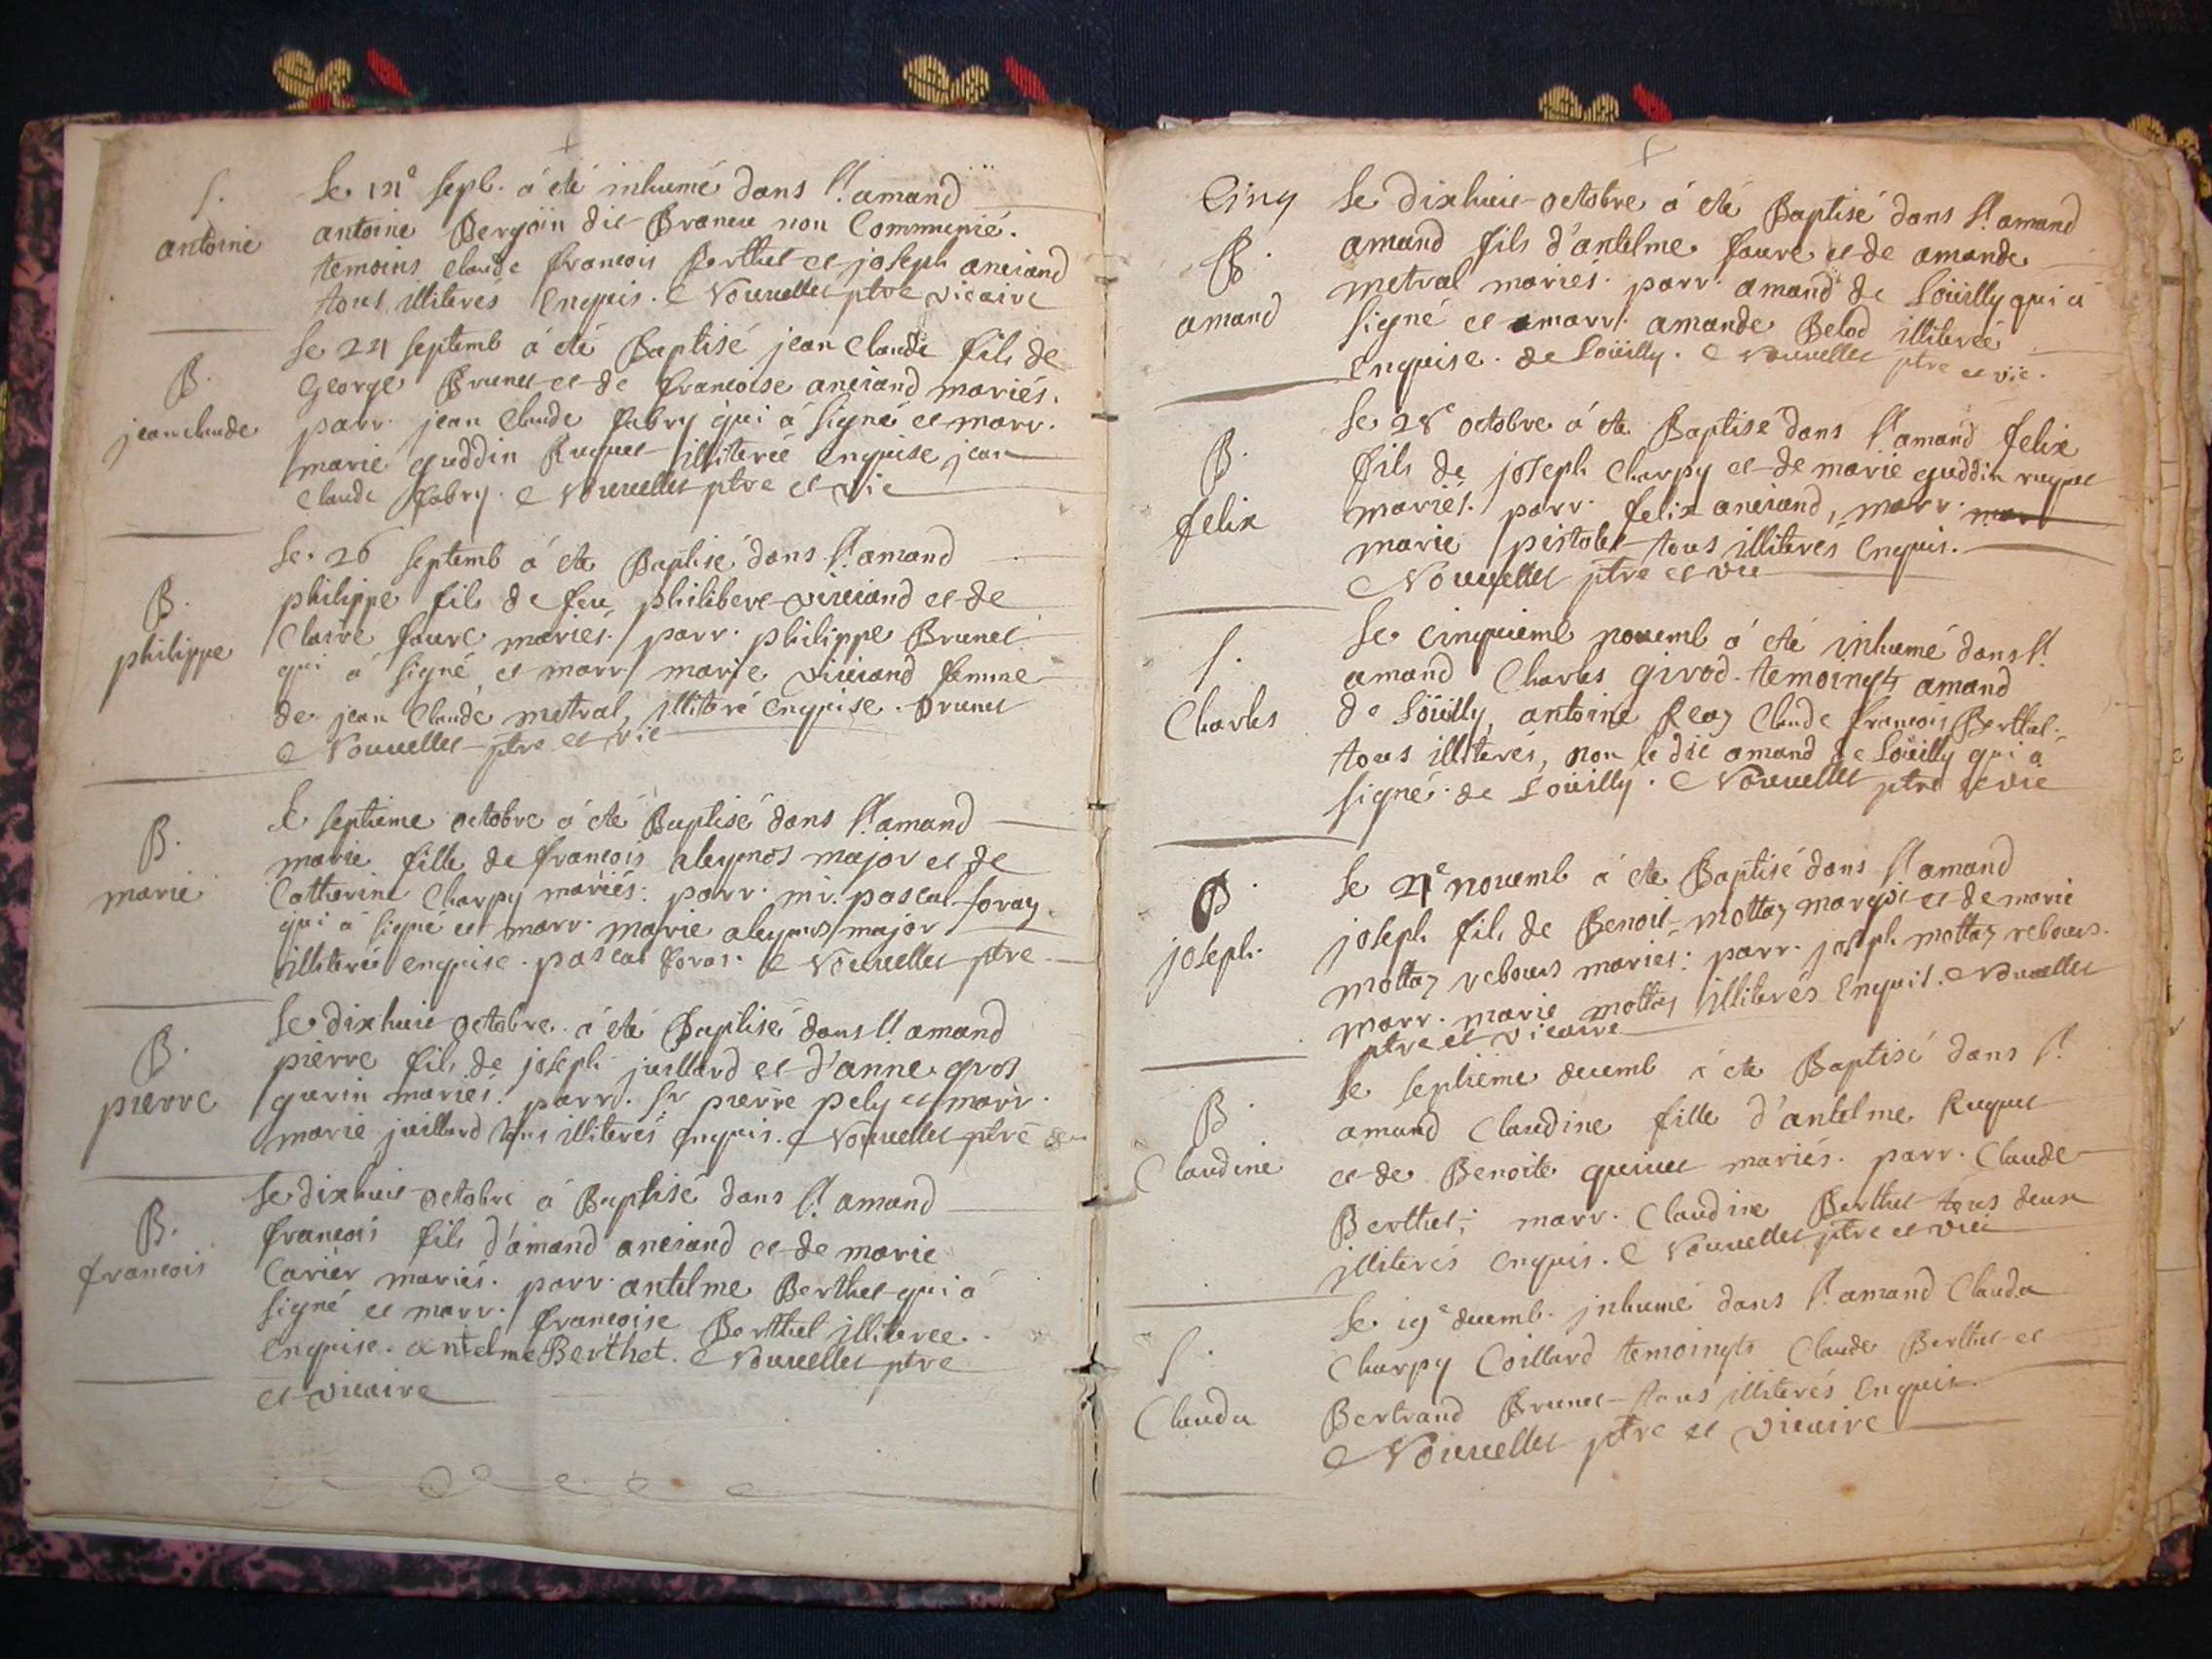 S.
antoine
Le 12e septb. á eté inhumé dans St. amand
antoine Bergoin dit Brancu non Communié.
temoins claude francois Berthet et joseph anciand
tous illiterés Enquis. Nouvellet ptre vicaire
B.
jeanclaude
Le 24 septemb á eté Baptisé jean Claude fils de
George Brunet et de francoise anciand mariés.
parr. jean Claude fabry qui á signé et marr.
marie guddin Ruquet illiterée Enquise jean
Claude fabry. Nouvellet ptre et vic
B.
philippe
Le 26 septemb á eté Baptisé dans St. amand
philippe fils de feu philibert viviand et de
Claire faure mariés. parr. philippe Brunet
qui á signé et marr. marie viviand femme
de jean Claude metral, illiteré enquise. Brunet
Nouvellet ptre et vic
B.
marie
Le septieme octobre á eté Baptisé dans St. amand
marie fille de francois aleymos major et de
Catherine Charpy mariés. parr. mr. pascal foray
qui á signé et marr. marie aleymos major
illiterée enquise. pascal foras. Nouvellet ptre
B.
pierre
Le dixhuit octobre á eté Baptisé dans St. amand
pierre fils de joseph juillard et d'anne gros
gurin mariés. parr. Sr pierre pely et marr.
marie juillard tous illiterés enquis. Nouvellet ptre et
B.
francois
Le dixhuit octobre á Baptisé dans St. amand
francois fils d'amand anciand et de marie
Carier mariés. parr. antelme Berthet qui á
signé et marr. francoise Berthet illiteree
enquise. antelme Berthet. Nouvellet ptre
et vicaire
Cinq
B.
amand
Le dixhuit octobre á eté Baptisé dans St. amand
amand fils d'antelme faure et de amande
metral mariés. parr. amand de Loüilly qui á
signé et marr. amande Belod illiterée
enquise. de Loüilly. Nouvellet ptre et vic.
B.
felix
Le 28e octobre á eté Baptisé dans St. amand felix
fils de joseph Charpy et de marie guddin ruquet
mariés. parr. felix anciand, marr. marr
marie pistolet tous illiterés Enquis.
Nouvellet ptre et vic
S.
Charles
Le cinquieme novemb á eté inhumé dans St.
amand Charles girod. temoingts amand
de Loüilly, antoine Reaz Claude francois Berthet.
tous illiterés, non le dit amand de Loüilly qui á
signé. de Loüilly. Nouvellet ptre et vic
B.
joseph.
Le 21e novemb á eté Baptisé dans St. amand
joseph fils de Benoit mottaz margoi et de marie
mottaz rebours mariés. parr. joseph mottaz rebours.
marr. marie mottaz illiterés Enquis. Nouvellet
ptre et vicaire
B.
Claudine
Le septième decemb á eté Baptisé dans St.
amand Claudine fille d'antelme Ruquet
et de Benoite quinet mariés. parr. Claude
Berthet; marr. Claudine Berthet tous deux
illiterés enquis. Nouvellet ptre et vic
S.
Clauda
Le 19e decemb. inhumé dans St. amand Clauda
Charpy Coillard temoingts Claude Berthet et
Bertrand Brunet tous illiterés Enquis.
Nouvellet ptre et vicaire